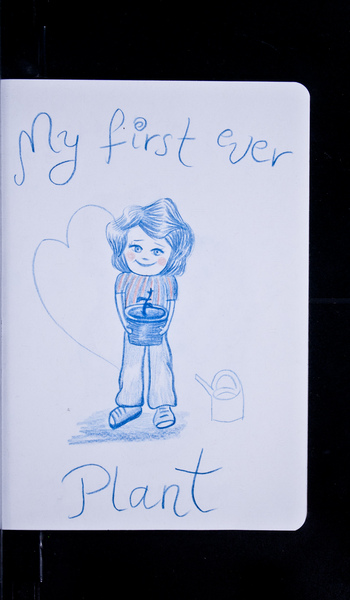 My first ever
Plant